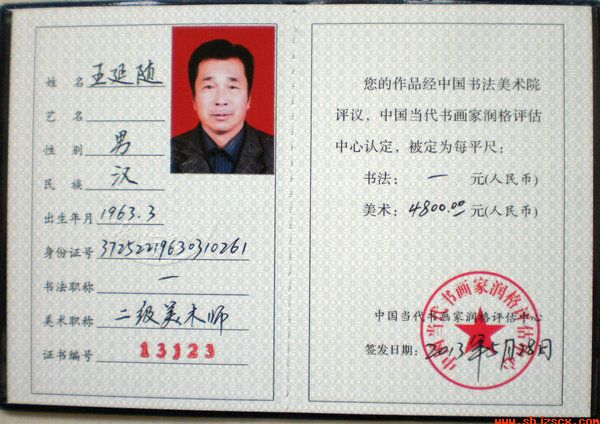 姓 名 王延随
艺 名
性 别 男
民 族 汉
出生年月 1963.3
身份证号 37252219630310261
书法职称 一
美术职称 二级美术师
证书编号 13J23
您的作品经中国书法美术院
评议，中国当代书画家润格评估
中心认定，被定为每平尺：
书法： 一 元(人民币)
美术：4800.00 元(人民币)
中国当代书画家润格评估中心
签发日期：2013年5月28日
中国当代书画家润格评估中心
www.shjzscx.com